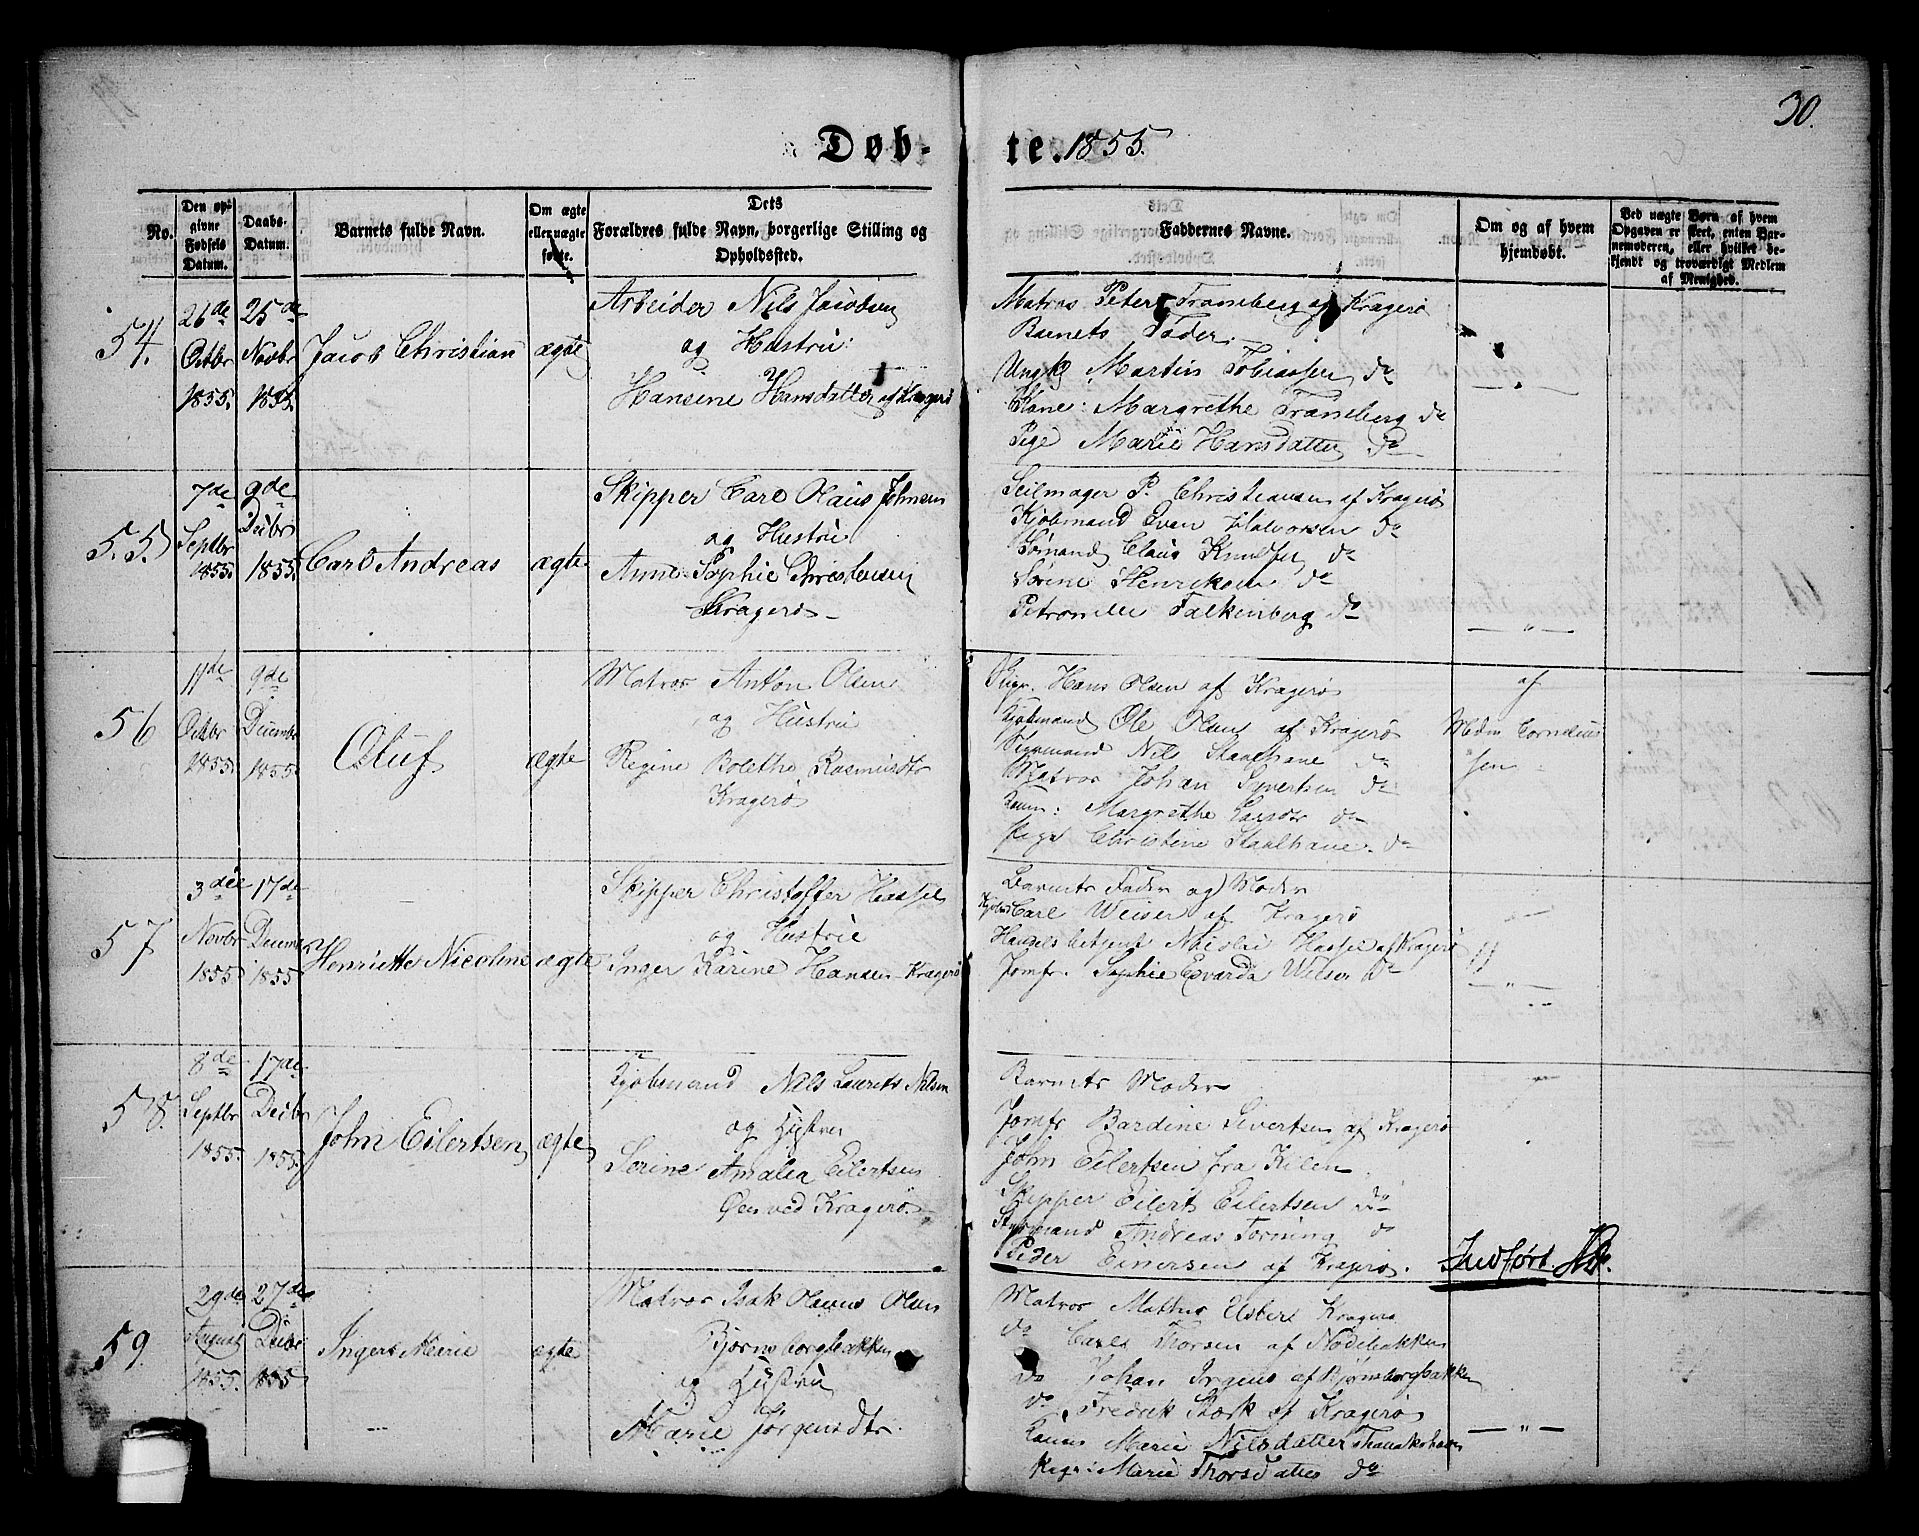 30.
Døb-te. 1855.
No.
Den op-
givne
Fødsels
Datum.
Daabs-
Datum.
Barnets fulde Navn.
Om ægte
eller uægte
fødte.
Dets
Forældres fulde Navn, borgerlige Stilling og
Opholdssted.
Faddernes Navne.
Om og af hvem
hjemdøbt.
Ved uægte Børn af hvem
Opgaven er skeet, enten Bar-
nemoderen, eller hvilket be-
kjendt og troværdigt Medlem
af Menighed.
54.
26de
Octbr
1855.
25de
Novbr
1855.
Jacob Christian
ægte
Arbeider Nils Jacobsen
og Hustru:
Hansine Hansdatter af Kragerø
Matros Peter Traneberg af Kragerø
Barnets Fader.
Ungk Martin Tobiassen do
Kone: Margrethe Traneberg do
Pige Marie Hansdatter do
55.
7de
Septbr
1855.
9de
Decbr
1855.
Carl Andreas
ægte
Skipper Carl Olaus Johnsen
og Hustru
Anne Sophie Christensen
Kragerø
Seilmager P. Christiansen af Kragerø
Kjøbmand Even Halvorsen do
Sømand Claus Knudsen do
Sørine Henriksen do
Petronelle Falkenberg do
56
11de
Octbr
1855.
9de
Decembr
1855.
Oluf
ægte
Matros Anton Olsen
og Hustru
Regine Bolethe Rasmusdtr
Kragerø
Skipr. Hans Olsen af Kragerø
Kjøbmand Ole Olsen af Kragerø
Styrmand Nils Staalhane do
Matros Johan Syvertsen do
Konen: Margrethe Larsdtr do
Pige Christine Staalhane do
af
Mdm Cornelius
sen
57
3die
Novbr
1855
17de
Decembr
1855
Henriette Nicoline
ægte
Skipper Christoffer Hassel
og Hustru
Inger Karine Hansen Kragerø
Barnets Fader og Moder
Kjøbmd Carl Weiser af Kragerø
Handelsbetjent Nicolai Hassel af Kragerø
Jomfr. Sophie Edvarda Weiser do
58.
8de
Septbr
1855.
17de
Decbr
1855.
John Eilertsen
ægte
Kjøbmand Nils Laurits Nilsen
og Hustru
Serine Amalia Eilertsen
Øen ved Kragerø
Barnets Moder
Jomfr Bardine Sivertsen af Kragerø
John Eilertsen fra Kilen
Skipper Eilert Eilertsen do
Styrmand Andreas Torning do
Peder Einersen af Kragerø.
Indført.
59.
29de
August
1855.
27de
Decbr
1855
Inger Marie
ægte
Matros Isak Olaus Olsen
Bjørnsborgbakken
og Hustru
Marie Jørgensdtr.
Matros Mathias Kragerø
do Carl Thorsen af Nodebakken
do Johan Jrgens af Bjørnsborgbakken
do Fredrik Stork af Kragerø
Konen Marie Nilsdatter
Pige: Marie Thorsdatter do